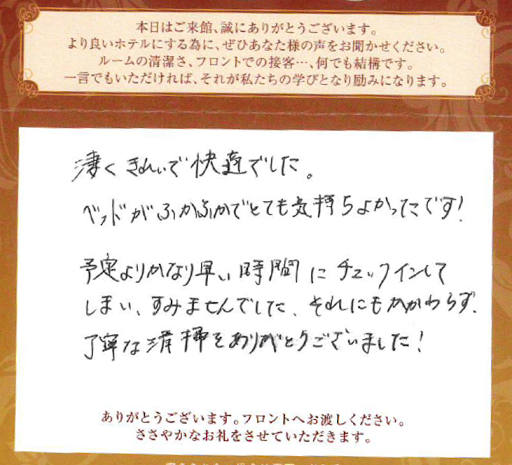 本日はご来館、誠にありがとうございます。
より良いホテルにする為に、ぜひあなた様の声をお聞かせください。
ルームの清潔さ、フロントでの接客…、何でも結構です。
一言でもいただければ、それが私たちの学びとなり励みになります。
凄くきれいで快適でした。
ベッドがふかふかでとても気持ちよかったです!
予定よりかなり早い時間にチェックインして
しまい、すみませんでした、それにもかかわらず、
丁寧な清掃をありがとうございました!
ありがとうございます。フロントへお渡しください。
ささやかなお礼をさせていただきます。